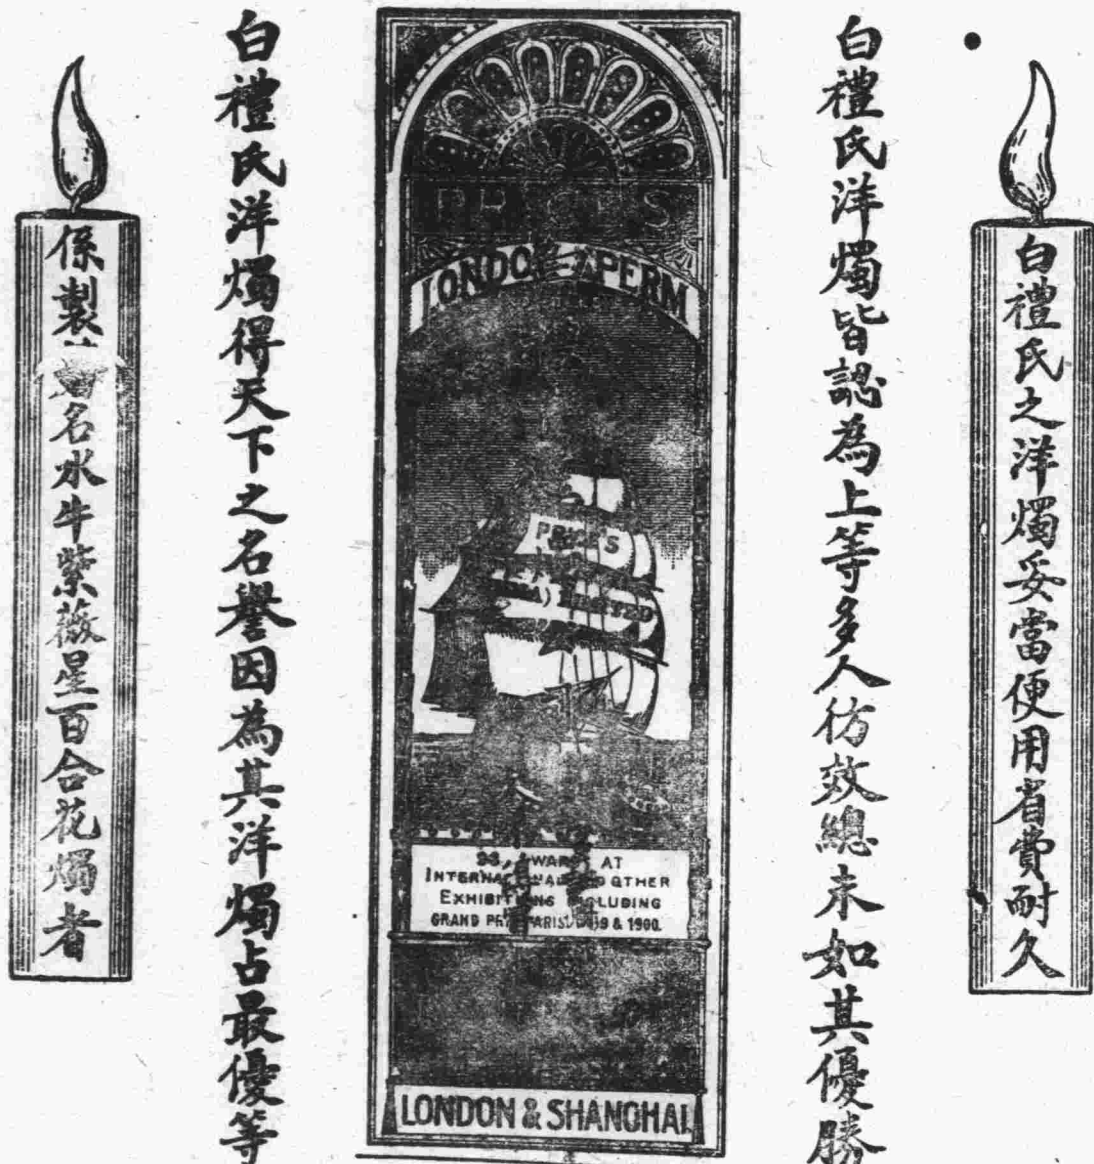 白禮氏之洋燭妥當便用省費耐久
白禮氏洋燭皆認為上等多人彷效總未如其優勝
PRICE'S
LONDON SPERM
PRICE'S
LIMITED
AWARDS AT
INTERNATIONAL AND OTHER
EXHIBITIONS INCLUDING
GRAND PRIX PARIS & 1900.
LONDON & SHANGHAI
白禮氏洋燭得天下之名譽因為其洋燭占最優等
係製名水牛紫薇星百合花燭者